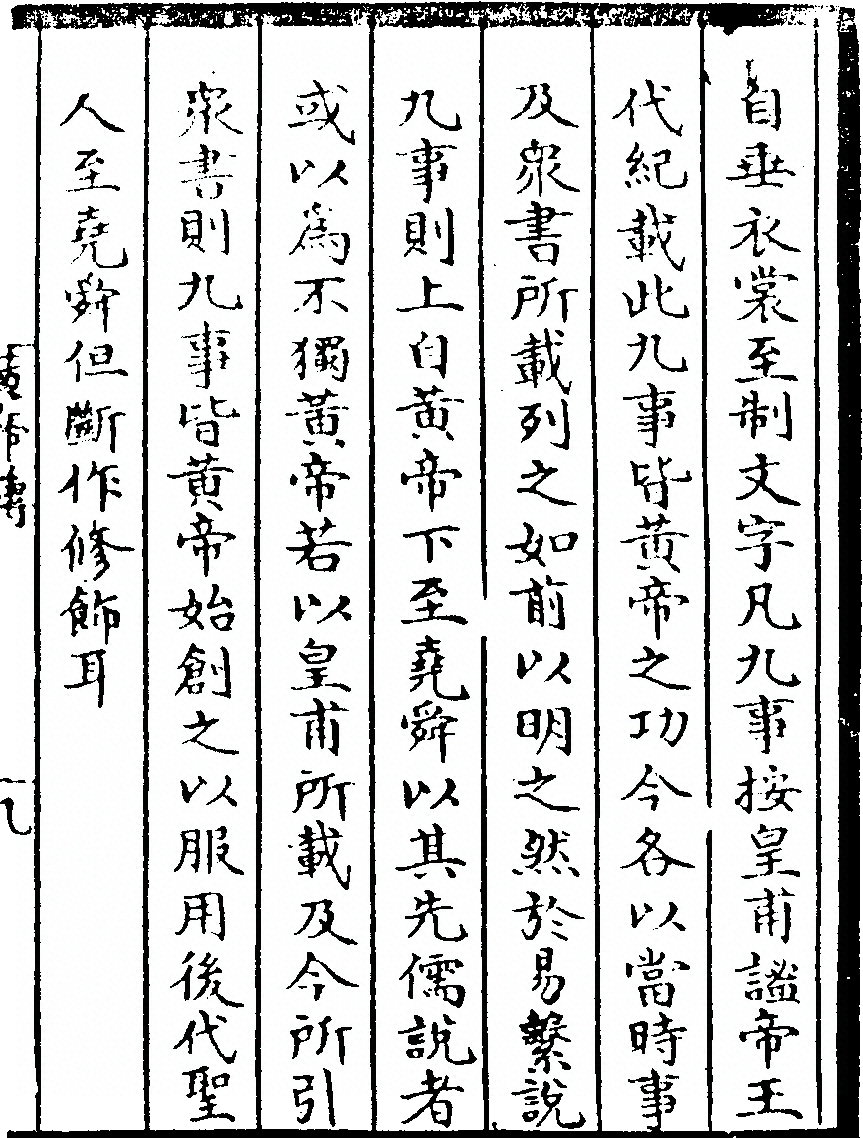 自垂衣裳至制文字凡九事按皇甫謐帝王
代紀載此九事皆黃帝之功今各以當時事
及衆書所載列之如前以明之然於易繫說
九事則上自黃帝下至堯舜以其先儒說者
或以爲不獨黃帝若以皇甫所載及今所引
衆書則九事皆黃帝始創之以服用後代聖
人至堯舜但斷作修飾耳